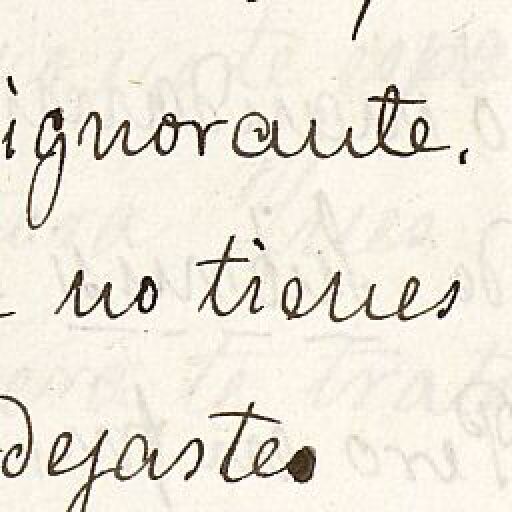 ignorante.
no tienes
dejaste.